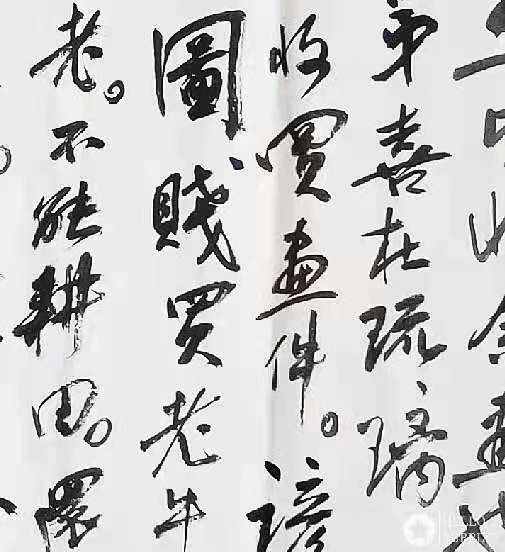 弟喜在琉璃
收買畫件。諺
圖賤買老牛
老。不能耕田。還